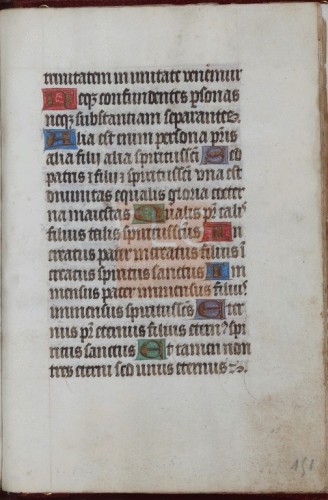 trinitatem in unitate venemur
Neqz confundentes psonas
neqz substantiam separante
Alia est enim persona pris
alia filij alia spiritussci Sed
patris z filij z spiritussci una est
divinitas equalis gloria coeter
na maiestas Qualis pr talis
filius talis spiritussctus In
creatus pater increatus filius i
creatus spiritus sanctus Im
mensus pater immensus filius
immensus spiritusscs Eter
nus pr eternus filius etern9 spi
ritus sanctus Et tamen non
tres eterni sed unus eternus
151